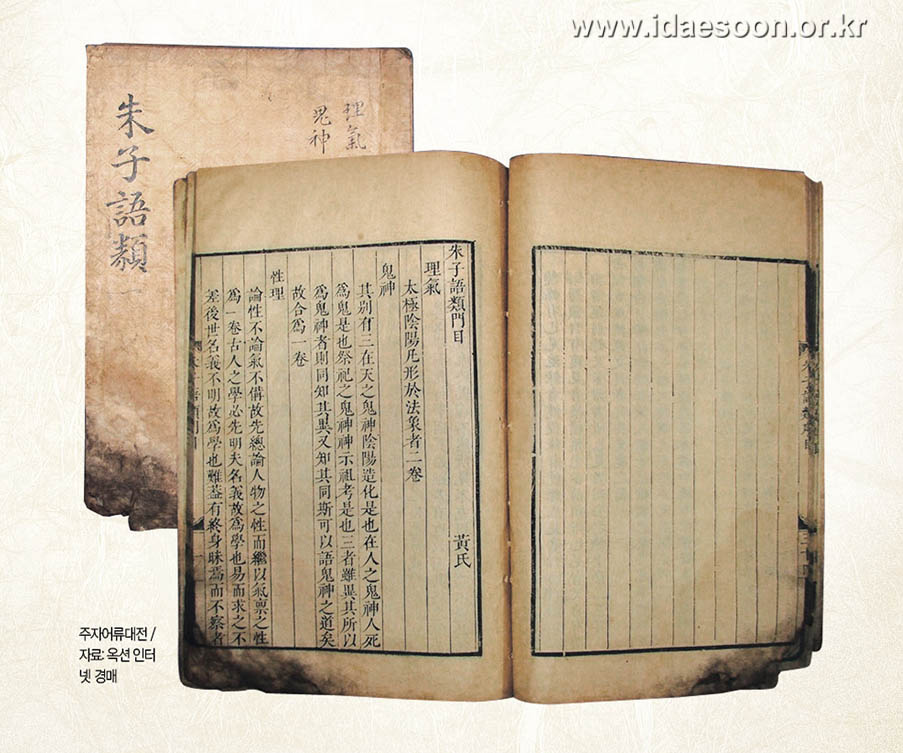 www.idaesoon.or.kr
理氣
鬼神
朱子語類 一
朱子語類門目 黃氏
理氣
太極陰陽凡形於法象者二卷
鬼神
其别有三在天之鬼神陰陽造化是也在人之鬼神人死
爲鬼是也祭祀之鬼神神示祖考是也三者雖異其所以
爲鬼神者則同知其異又知其同斯可以語鬼神之道矣
故合爲一卷
性理
論性不論氣不備故先總論人物之性而繼以氣禀之性
爲一卷古人之學必先明夫名義故爲學也易而求之不
差後世名義不明故爲學也難葢有終身昧焉而不察者
주자어류대전 /
자료: 옥션 인터
넷 경매